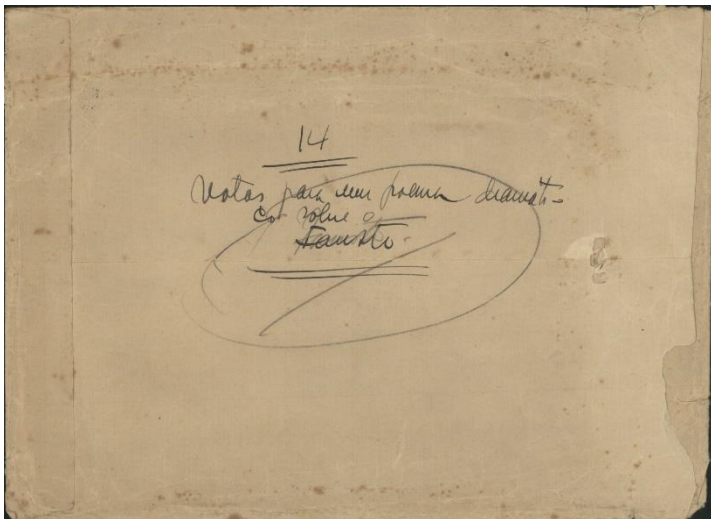 14
Notas para um poema dramati-
co sobre o
Fausto.